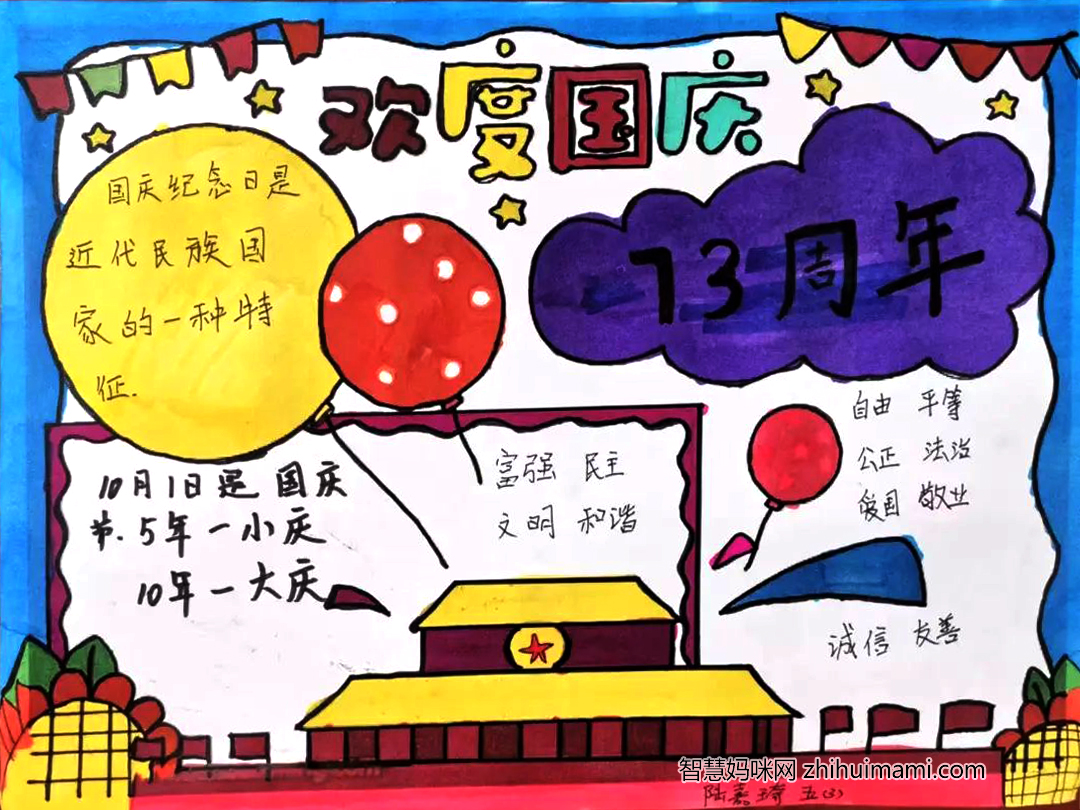 欢度国庆
国庆纪念日是
近代民族国
家的一种特
征.
73周年
10月1日是国庆
节.5年一小庆
10年一大庆
富强 民主
文明 和谐
自由 平等
公正 法治
爱国 敬业
诚信 友善
智慧妈咪网 zhihuimami.com
陆嘉琦 五(3)